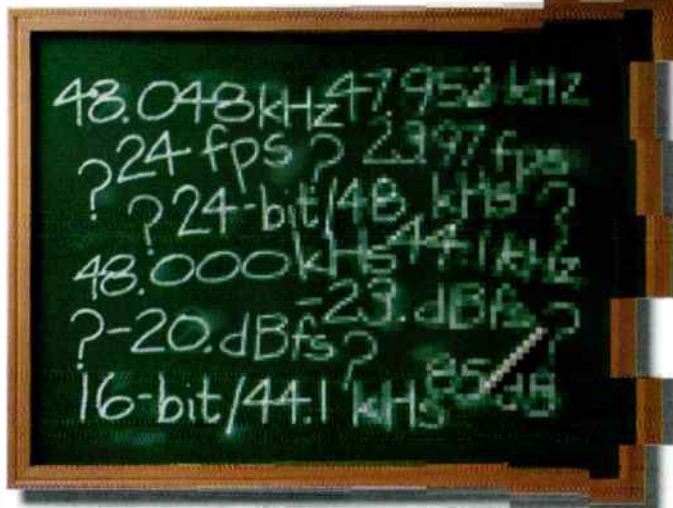 48.048kHz 47.952 kHz
? 24 fps ? 23.97 fps
? 24-bit/48 kHs ?
48.000kHs 44.1 kHz
-23.dBfs ?
?-20.dBfs ?
16-bit/44.1 kHs 85 dB